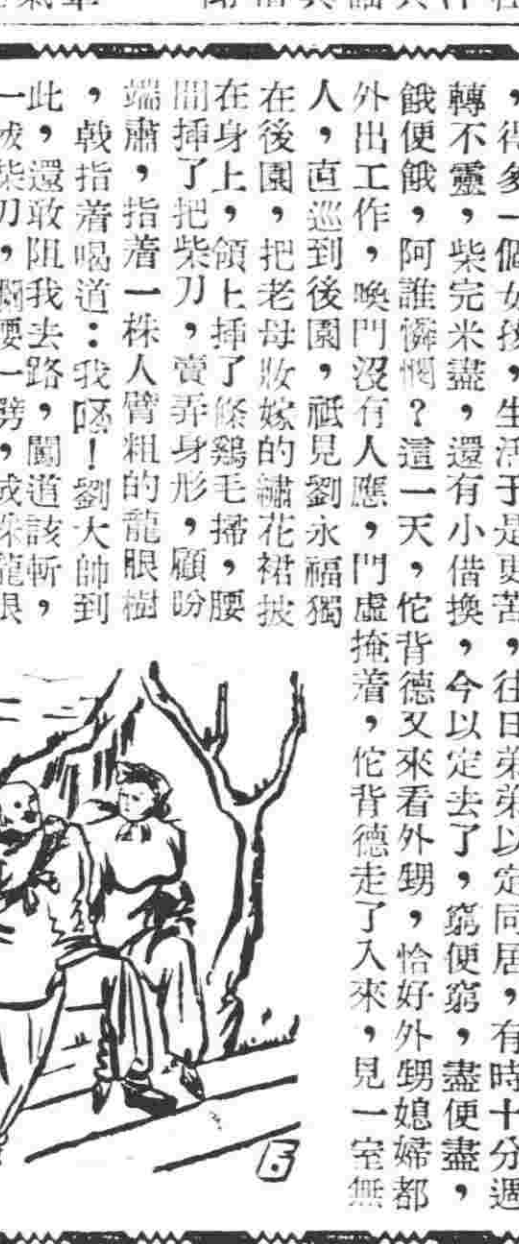 ，得多一個女孩，生活于是更苦，往日弟弟以定同居，有時十分週
轉不靈，柴完米盡，還有小借換，今以定去了，窮便窮，盡便盡，
餓便餓，阿誰憐憫？這一天，佗背德又來看外甥，恰好外甥媳婦都
外出工作，喚門沒有人應，門虛掩着，佗背德走了入來，見一室無
人，直巡到後園，祇見劉永福獨
在後園，把老母妝嫁的繡花裙披
在身上，領上揷了條鷄毛掃，腰
間揷了把柴刀，賣弄身形，顧盼
端肅，指着一株人臂粗的龍眼樹
，戟指着喝道：我嗯！劉大帥到
此，還敢阻我去路，闖道該斬，
一
柴刀，攔腰一劈，
株龍眼
6